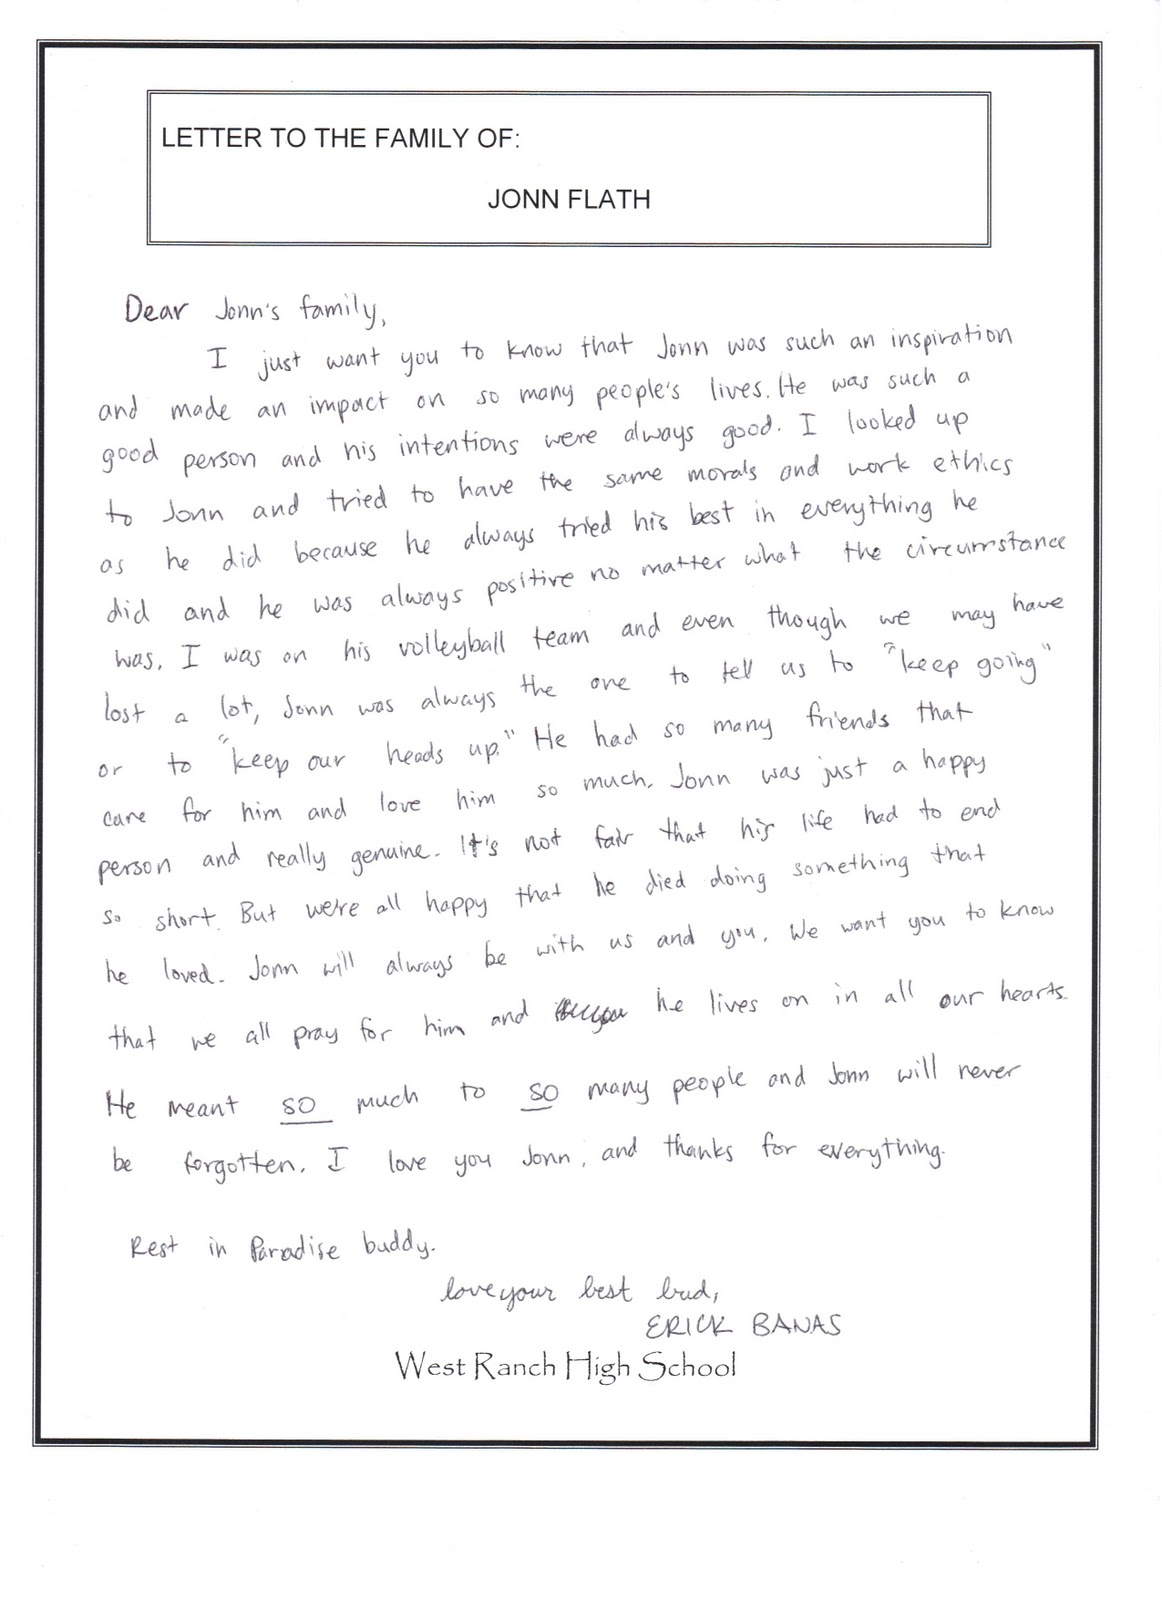 LETTER TO THE FAMILY OF:
JONN FLATH
Dear Jonn's family,
I just want you to know that Jonn was such an inspiration
and made an impact on so many people's lives. He was such a
good person and his intentions were always good. I looked up
to Jonn and tried to have the same morals and work ethics
as he did because he always tried his best in everything he
did and he was always positive no matter what the circumstance
was. I was on his volleyball team and even though we may have
lost a lot, Jonn was always the one to tell us to "keep going"
or to "keep our heads up." He had so many friends that
care for him and love him so much. Jonn was just a happy
person and really genuine. It's not fair that his life had to end
so short. But we're all happy that he died doing something that
he loved. Jonn will always be with us and you. We want you to know
that we all pray for him and he lives on in all our hearts.
He meant so much to so many people and Jonn will never
be forgotten. I love you Jonn, and thanks for everything.
Rest in Paradise buddy.
love your best bud,
ERICK BANAS
West Ranch High School